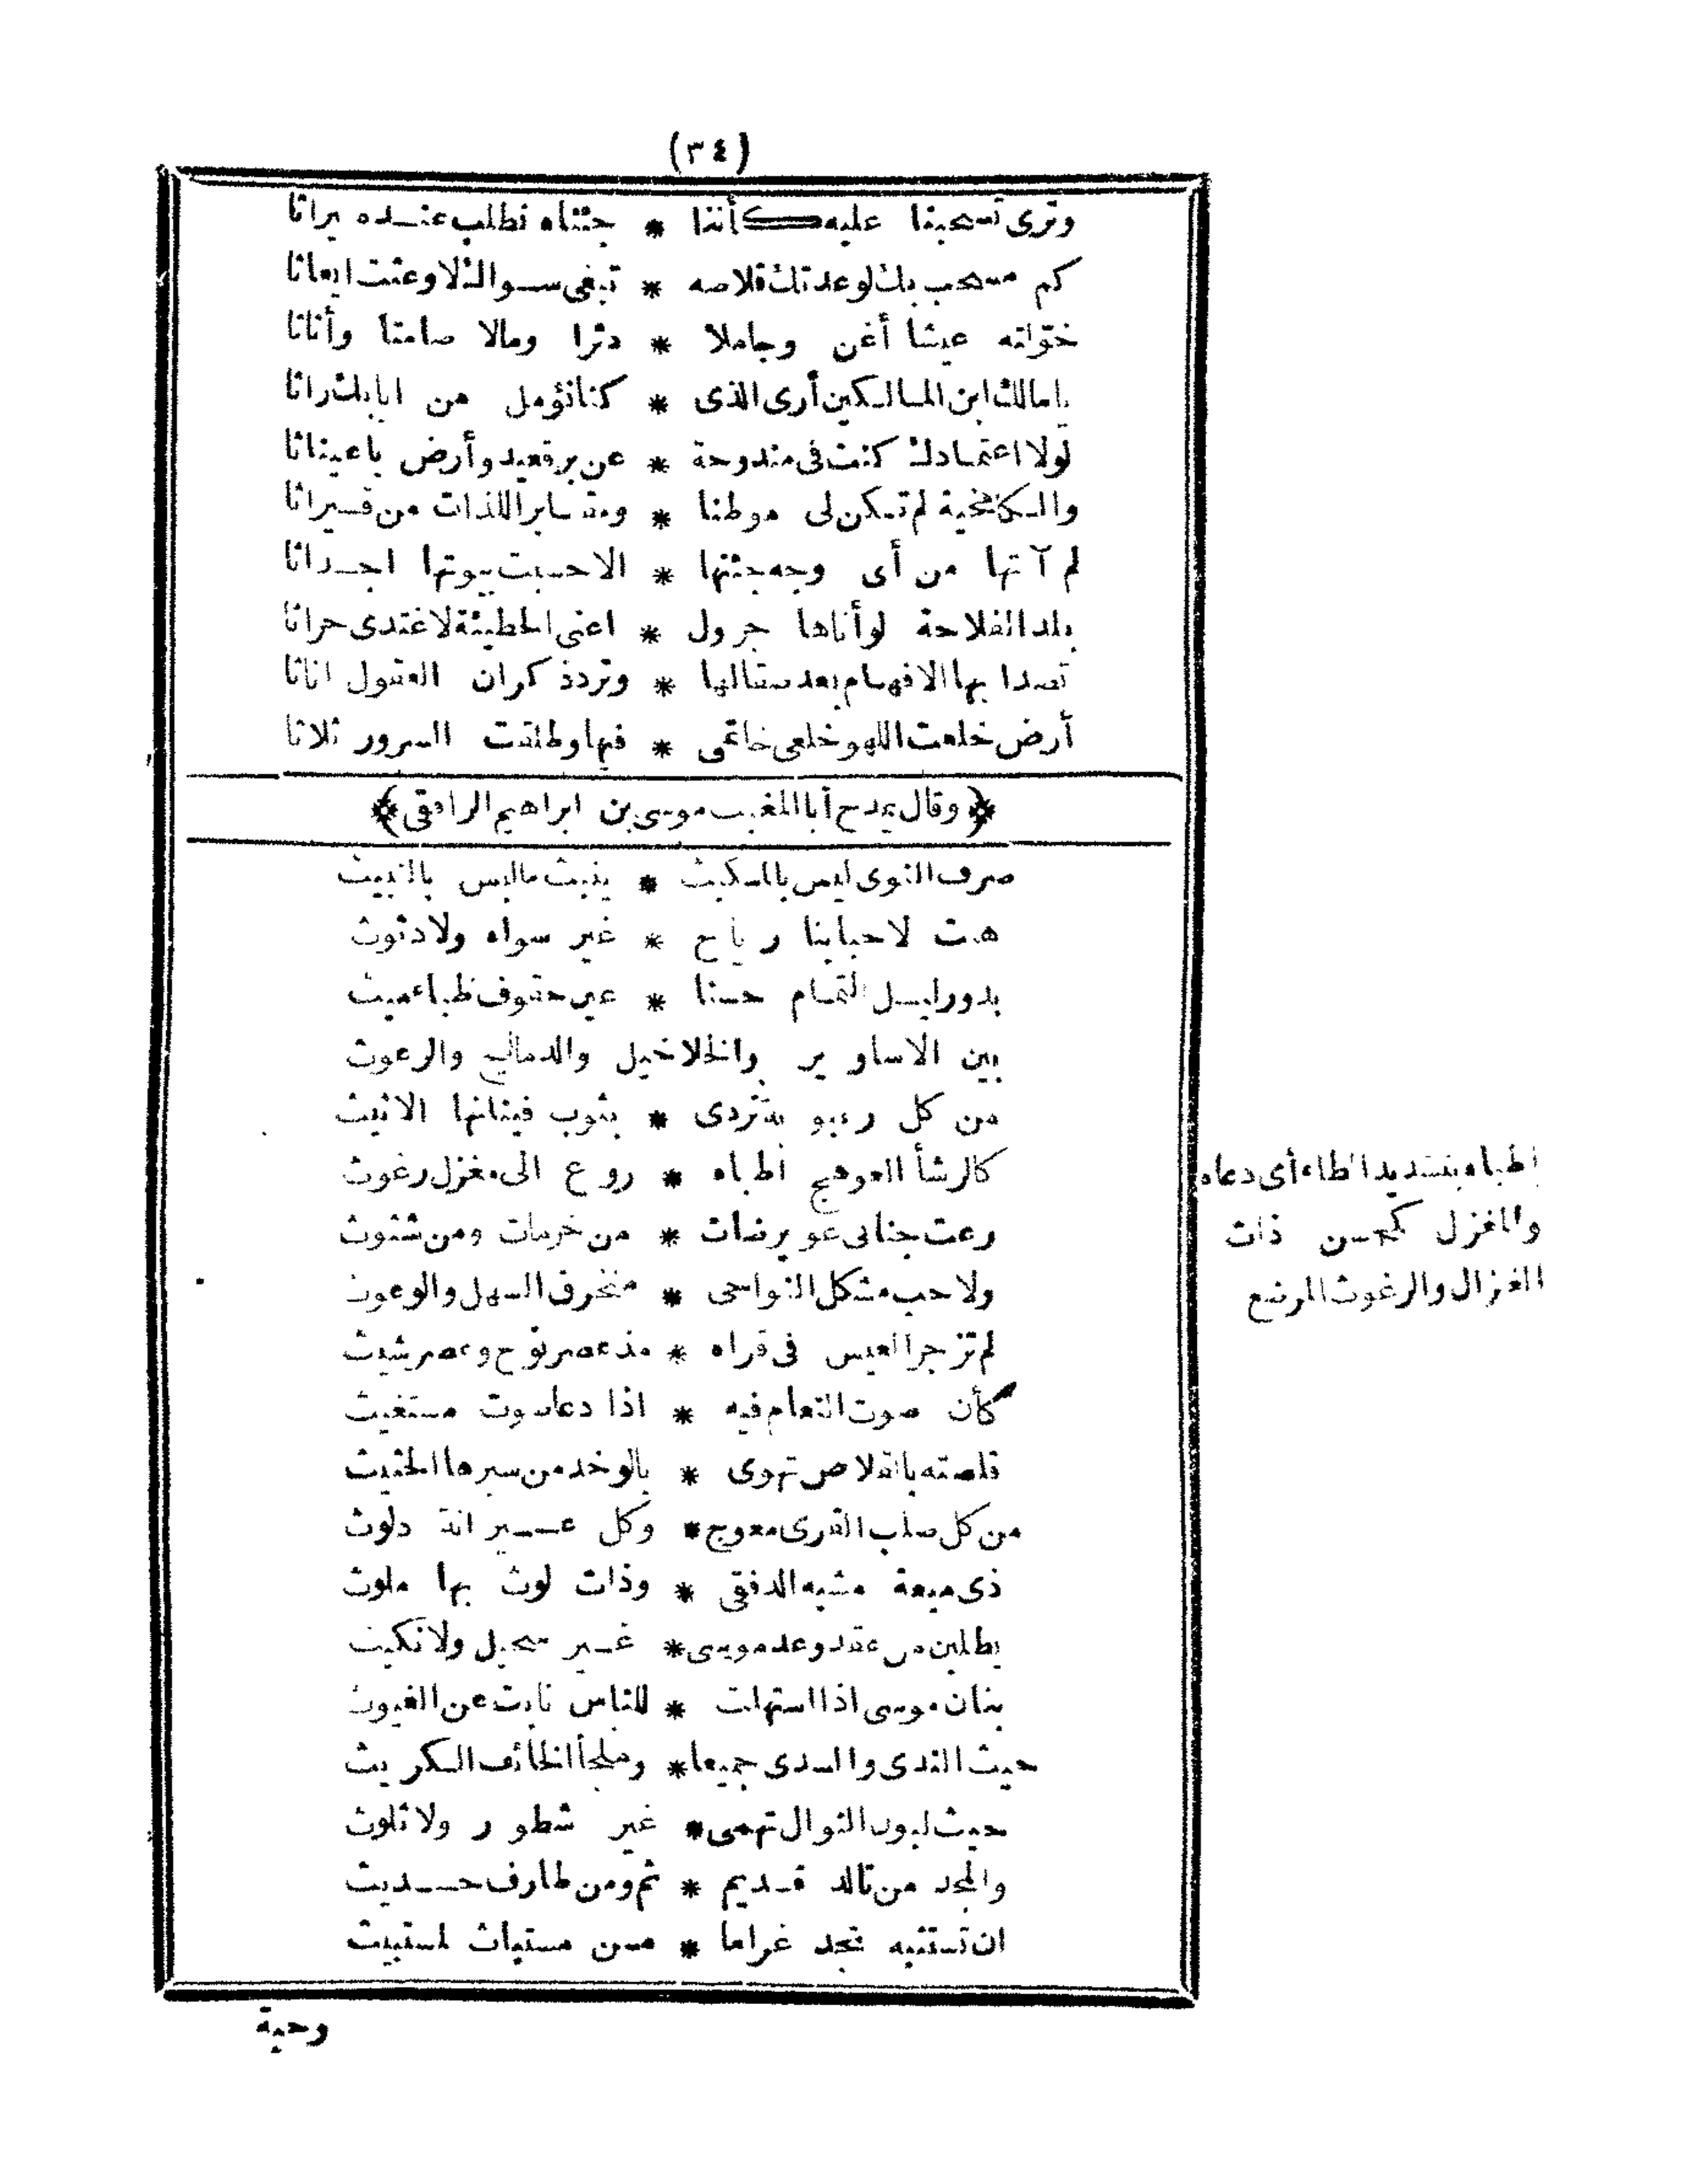 (٣٤)
وترى تسحبنا عليه كأننا * جئناه نطلب عنده ميراثا
كم مسحب بك لو عدتك قلاصه * تبغى سواك لأوعثت ايعاثا
خولته عيشا أغن وجاملا * دثرا ومالا صامتا وأثاثا
يا مالك ابن المالكين أرى الذى * كنا نؤمل من ايابك راثا
لولا اعتمادك كنت فى مندوحة * عن برقعيد وأرض باعيناثا
والكامخية لم تكن لى موطنا * ومقابر اللذات من قبراثا
لم آتها من أى وجه جئتها * الا حسبت بيوتها اجداثا
بلد الفلاحة لو أتاها جرول * اعنى الحطيئة لاغتدى حراثا
تصدا بها الافهام بعد صقالها * وترد ذكران العقول اناثا
أرض خلعت اللهو خلعى خاتمى * فيها وطلقت السرور ثلاثا
﴿وقال يمدح أبا المغيث موسى بن ابراهيم الرافقى﴾
صرف النوى ليس بالمكيث * ينبث ما ليس بالنبيث
هبت لاحبابنا رياح * غير سواه ولا دثوث
بدور ليل التمام حسنا * عين حقوف ظباء ميث
بين الاساوير والخلاخيل والدماليج والرعوث
من كل رعبوبة تردى * بثوب فينانها الاثيث
كالرشأ العوهج اطباه * روع الى مغزل رغوث
رعت جنابى عويرضات * من خزمات ومن شثوث
ولاحب مشكل النواحى * منخرق السهل والوعوث
لم تزجر العيس فى قراه * مذ عصر نوح وعصر شيث
كأن صوت النعام فيه * اذا دعا صوت مستغيث
قلصته بالقلاص تهوى * بالوخد من سيرها الحثيث
من كل صلب القرى معوج * وكل عيرانة دلوث
ذى ميعة مشيه الدفقى * وذات لوث بها ملوث
يطلبن من عقد وعد موسى * غير سحيل ولا نكيث
بنان موسى اذا استهلت * للناس نابت عن الغيوث
حيث الندى والسدى جميعا * وملجأ الخائف الكريث
حيث لبون النوال تهمى * غير شطور ولا ثلوث
والمجد من تالد قديم * ثم ومن طارف حديث
ان تستثبه تجد غراما * من مستباث لمستبيث
وحية
اطباه بتشديد الطاء أى دعاه
والمغزل كمحسن ذات
الغزال والرغوث المرضع